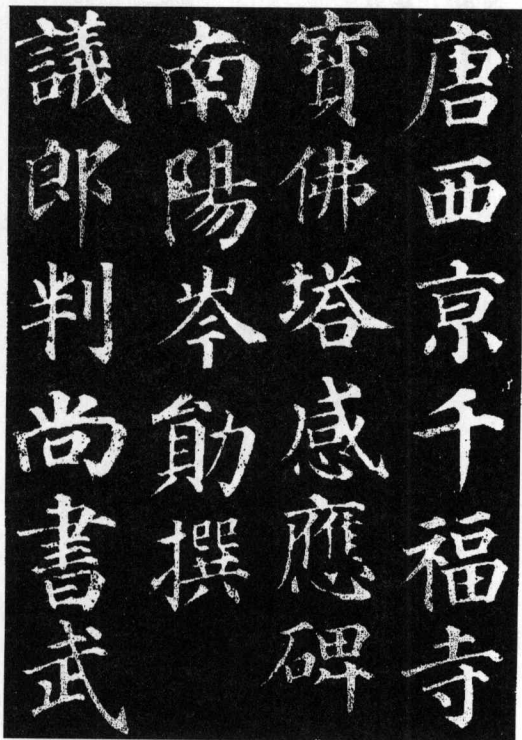 唐西京千福寺
寶佛塔感應碑
南陽岑勛撰
議郎判尚書武